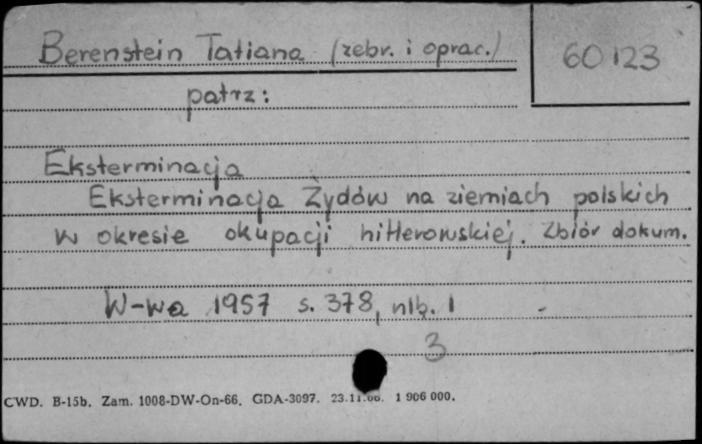 Berenstein Tatiana (zebr. i oprac.)
60123
patrz:
Eksterminacja
Eksterminacja Żydów na ziemiach polskich
w okresie okupacji hitlerowskiej. Zbiór dokum.
W-wa 1957 s. 378, nlb. 1
3
CWD. B-15b. Zam. 1008-DW-On-66. GDA-3097. 23.11.66. 1 906 000.